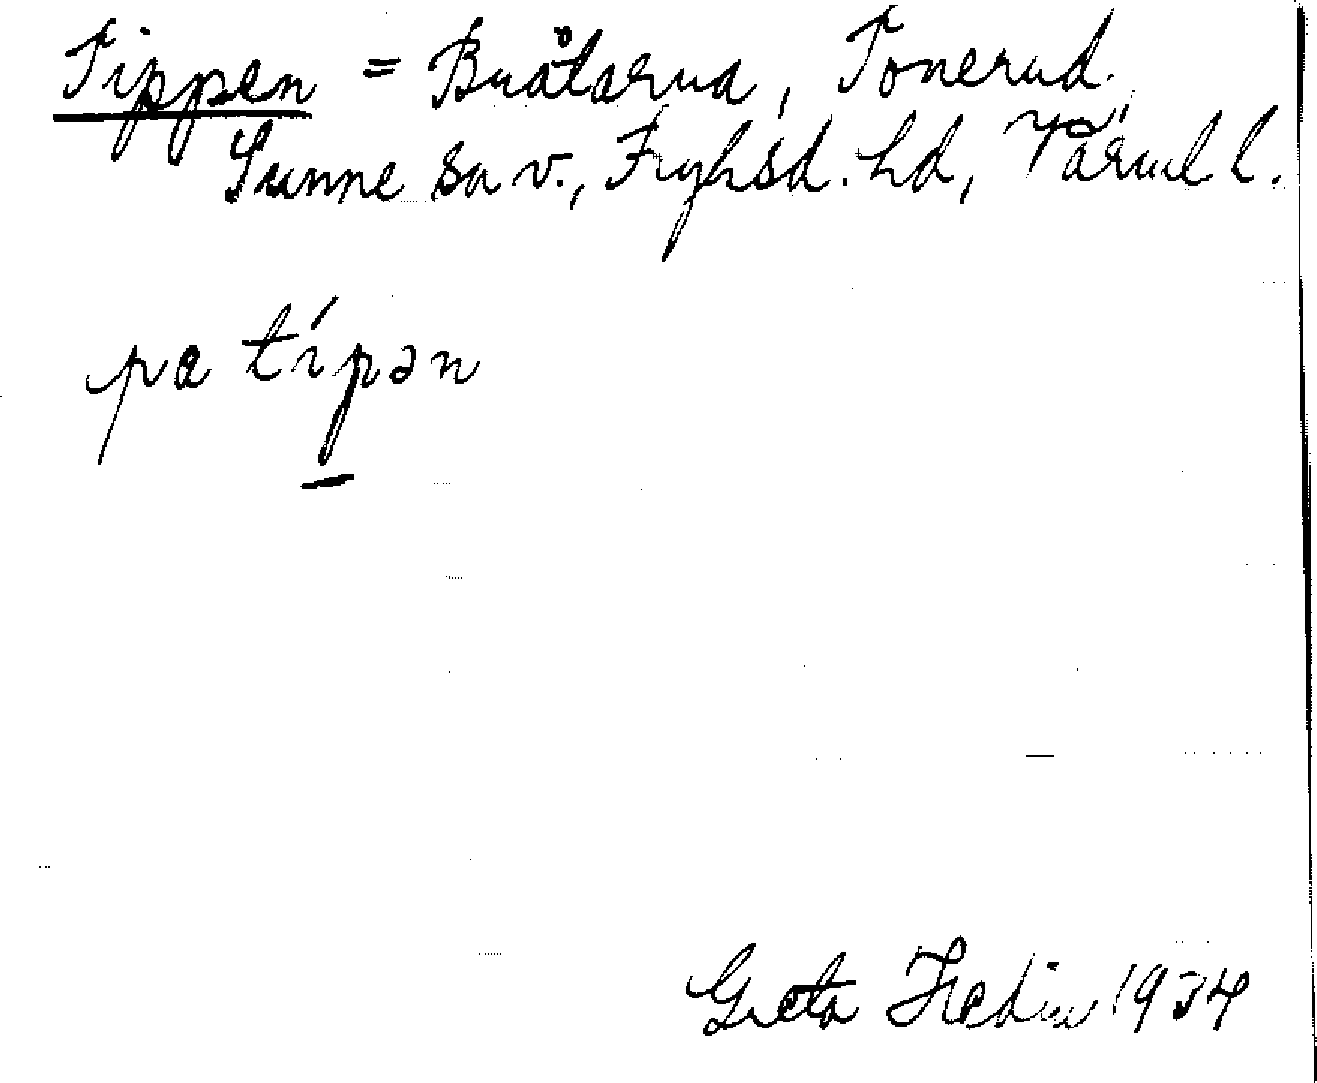 Tippen = Bråtarud, Tonerud,
Sunne sn v., Fryksd. hd, Värml l.
pa típən
Greta Hedin 1934